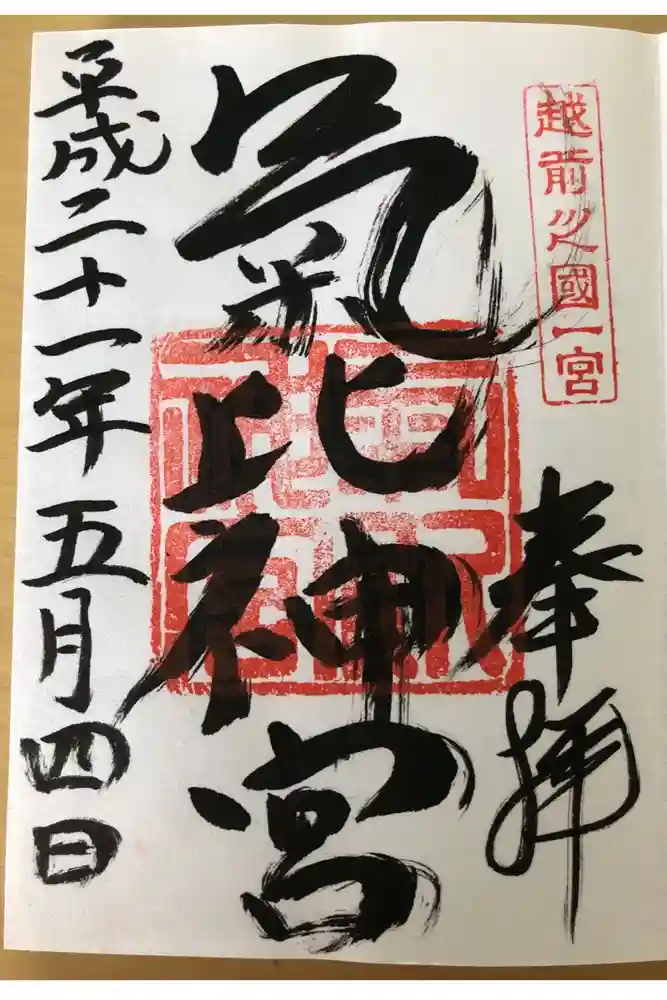 越前之國一宮
奉拝
氣比神宮
平成二十一年五月四日